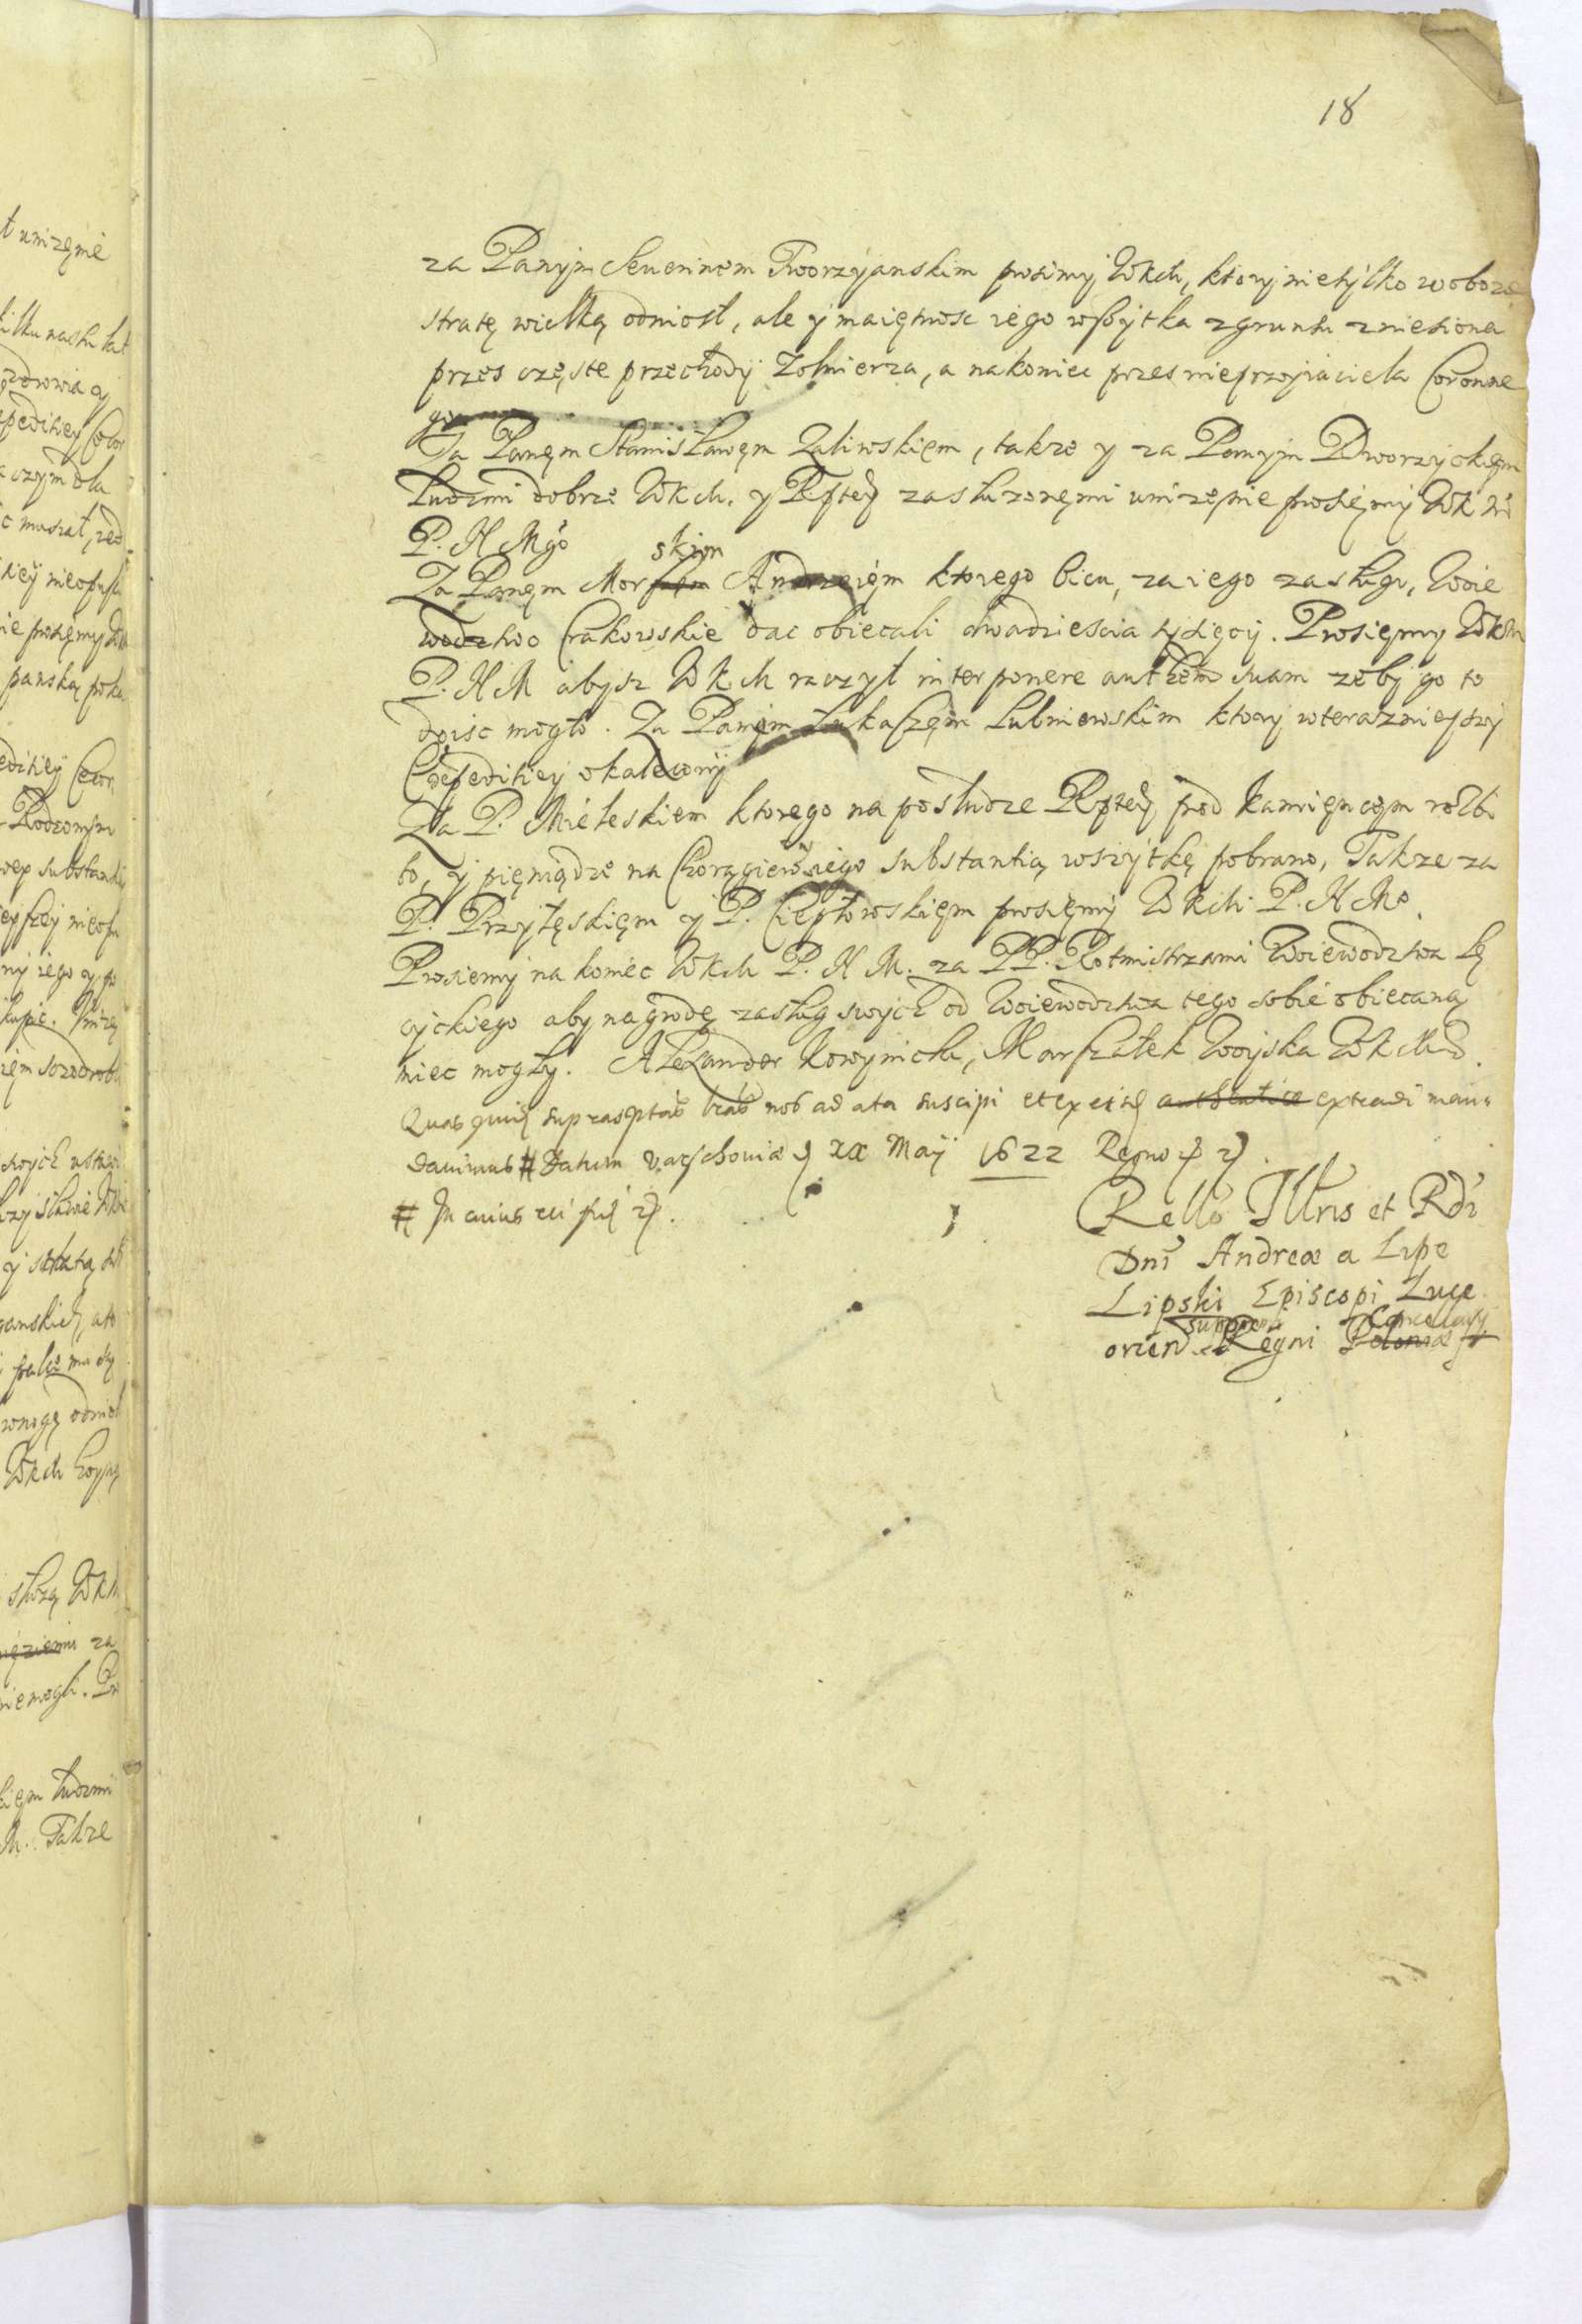 18
za Panym Seuerinem Tworzyanskim prosimy WKch, ktory nietylko w oboze
stratę wielką odniosł, ale y maiętnosc iego wszytka zgruntu zniesiona
przes częste przechody Zolnierza, a nakoniec przes nieprzyiaciela Coronne
go
Za Panęm Stanisławęm Zaliwskięm, takze y za Panym Dworzyckęm
Ludzmi dobrze WKch. y Rptey zasłuzonęmi unizęnie prosięmy WK M
P. N Mgo
Za Panęm Mor skim Andrzeięm ktorego oicu, za iego zasługi, Woie
wodztwo Crakowskie dac obiecali dwadziescia tysięcy. Prosięmy WKM
P. N M abysz WKch raczył interponere authem suam zeby go to
doisc mogło. Za Panym Łukaszęm Lubniewskim ktory wteraznieyszy
Expeditiey okalecony
Za P. Mieleskiem ktorego na posłudze Rptey pod Kamięncęm rozbi
to, y pięniądze na Chorągiew, iego substantią wszytkę pobrano, Takze za
P. Przyłęskięm y P. Ciepłowskięm prosięmy WKch P. N Mo.
Prosiemy na koniec WKch P. N M. za PP. Rotmistrzami Woiewodztwa Lę
cyckiego aby nagrodę zasług swych od Woiewodztwa tego sobie obiecaną
miec mogły. Alexander Kowynicki, Marszałek Woyska WKMci.
Quas quid suprascptas lras nos ad acta suscipi et ex eisd authentice extradi man
dauimus # Datum Varschouiæ d xx Maÿ 1622 Regno
# In cuius rei fid
Rello Illris et Rdi
Dni Andreæ a Lipe
Lipski Episcopi Luce
supremi Cancellarij
orien Regni Poloniæ